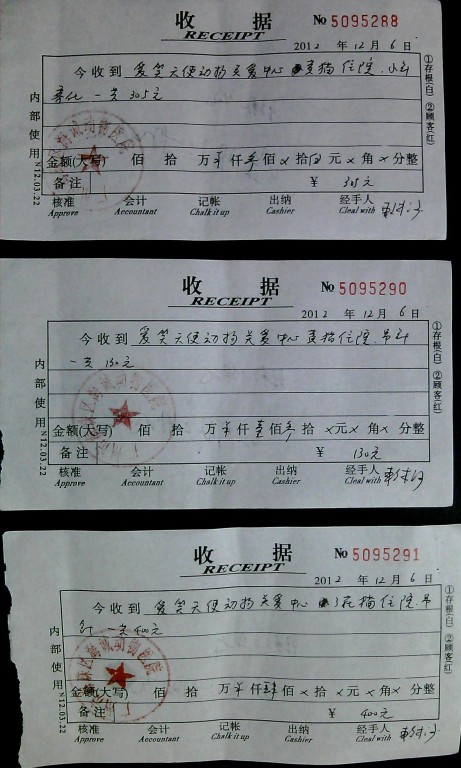 收 据
RECEIPT
No 5095288
2012 年 12 月 6 日
今收到 爱笑天使动物关爱中心 猫住院.
一共 305元
金额(大写) 佰 拾 万 仟 佰 拾 元 × 角 × 分整
备注 ¥ 305元
核准 会计 记帐 出纳 经手人
Approve Accountant Chalk it up Cashier Cleal with
内部使用 N12.03.22
①存根(白) ②顾客(红)
收 据
RECEIPT
No 5095290
2012 年 12 月 6 日
今收到 爱笑天使动物关爱中心 猫住院.吊针
一共 130元
金额(大写) 佰 拾 万 仟 壹佰 拾 ×元 × 角 × 分整
备注 ¥ 130元
核准 会计 记帐 出纳 经手人
Approve Accountant Chalk it up Cashier Cleal with
内部使用 N12.03.22
①存根(白) ②顾客(红)
收 据
RECEIPT
No 5095291
2012 年 12 月 6 日
今收到 爱笑天使动物关爱中心 猫住院.吊
针 一共400元
金额(大写) 佰 拾 万 仟 肆佰 × 拾 × 元 × 角 × 分整
备注 ¥ 400元
核准 会计 记帐 出纳 经手人
Approve Accountant Chalk it up Cashier Cleal with
内部使用 N12.03.22
①存根(白) ②顾客(红)